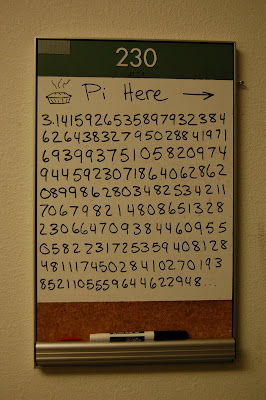 230
Pi Here →
3.1415926535897932384
626433832795028841971
69399375105820974
944592307186406286 2
0899862803482534211
706798214808651328
23066470938446095 5
0582231725359408128
48111745028410270193
852110555964462 2948...